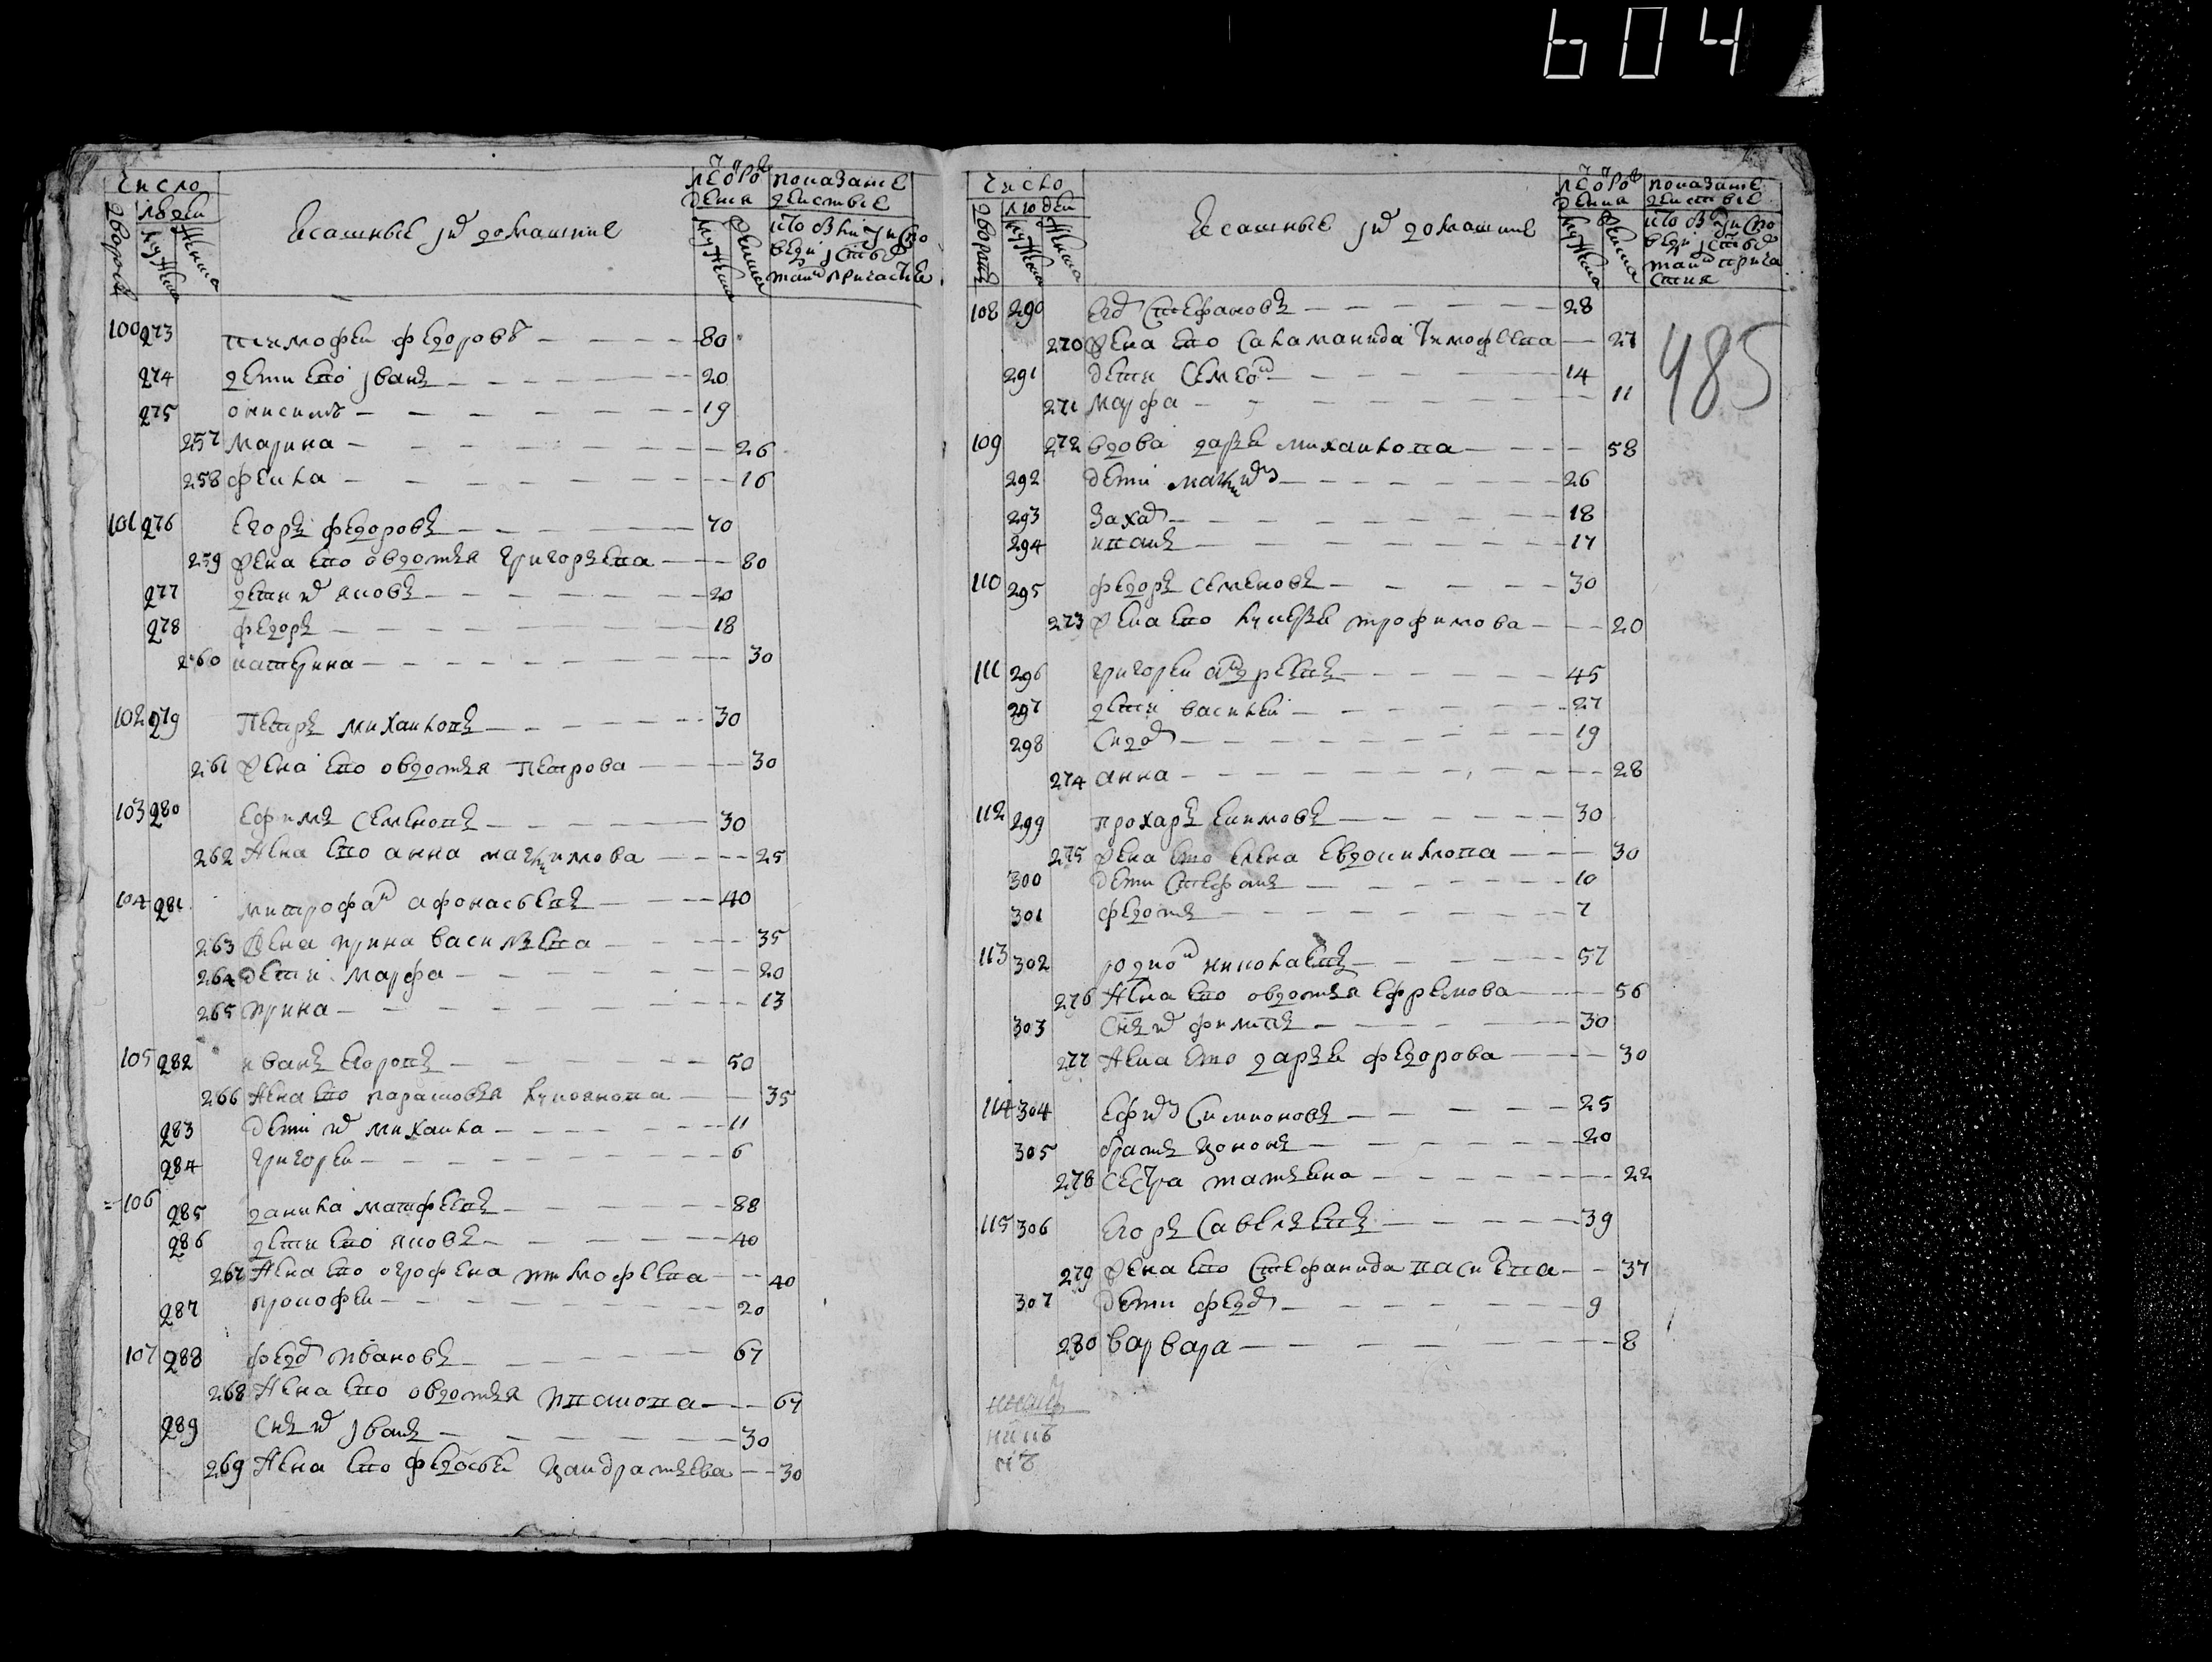 604
число
лѣта ѿ рож
дения
показате
действие
дворовъ
людей
мужеска
женска
ясашные и ихъ домашние
мужеска
женска
кто былъ у испо
веди и с҃тыхъ
таинъ причастия
100 273 тимофеи федоровъ 80
274 дети ево иванъ 20
275 онисимъ 19
257 марина 26
258 фекла 16
101 276 егоръ федоровъ 70
259 жена ево овдотья григорьева 80
277 дети их яковъ 20
278 федоръ 18
260 катерина 30
102 279 петръ михаиловъ 30
261 жена ево овдотья петрова 30
103 280 ефимъ семеновъ 30
262 жена ево анна максимова 25
104 281 митрофан афонасьевъ 40
263 жена ирина васильева 35
264 дети марфа 20
265 ирина 13
105 282 иванъ егоровъ 50
266 жена ево парасковья 35
283 дети их михаила 11
284 григореи 6
106 285 данила матфеевъ 88
286 дети ево яковъ 40
267 жена ево огрофена тимофеева 40
287 прокофеи 20
107 288 федор ивановъ 67
268 жена ево овдотья иванова 67
289 сынъ их иванъ 30
269 жена ево федосья кандратьева 30
число
лѣта ѿ рож
дения
показате
действие
дворовъ
людей
мужеска
женска
ясашные и ихъ домашние
мужеска
женска
кто былъ у испо
веди и с҃тыхъ
таинъ прича
стия
485
108 290 егор стефановъ 28
270 жена ево саламанида тимофеева 27
291 дети семеон 14
271 марфа 11
109 272 вдова дарья михаилова 58
292 дети максим 26
293 захар 18
294 иванъ 17
110 295 федоръ семеновъ 30
273 жена ево трофимова 20
111 296 григореи андреевъ 45
297 дети василеи 27
298 сидор 19
274 анна 28
112 299 прохаръ екимовъ 30
275 жена ево елена евдокимова 30
300 дети стефанъ 10
301 федотъ 7
113 302 родион николаевъ 57
276 жена ево овдотья ефремова 56
303 сынъ их филипъ 30
277 жена ево дарья федорова 30
114 304 ефим симионовъ 25
305 братъ кононъ 20
278 сестра татьяна 22
115 306 егоръ савельевъ 39
279 жена ево стефанида васильева 37
307 дети федор 9
280 варвара 8